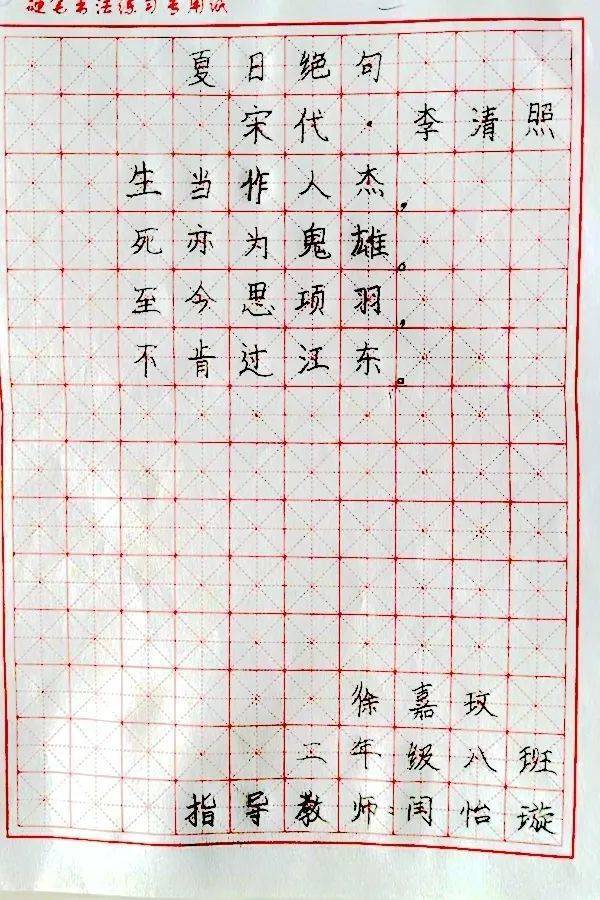 硬笔书法练习专用纸
夏日绝句
宋代·李清照
生当作人杰，
死亦为鬼雄。
至今思项羽，
不肯过江东。
徐嘉玟
工年级八班
指导教师：闫怡璇